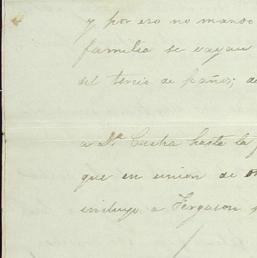 y por eso no mando
familia se vayan
del tercio de paño; d
a Dª Cucha hasta la f
que en unión de
incluyo a Ferguson